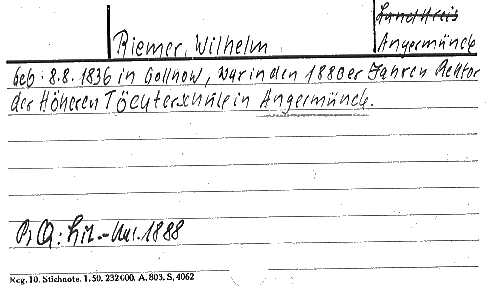 Landkreis
Riemer, Wilhelm
Angermünde
geb. 8.8.1836 in Gollnow, war in den 1880er Jahren Rektor
der Höheren Töchterschule in Angermünde.
Q: Lit.-Kal. 1888
Reg. 10. Stichnote. 1. 50. 232000. A. 803. S. 4062